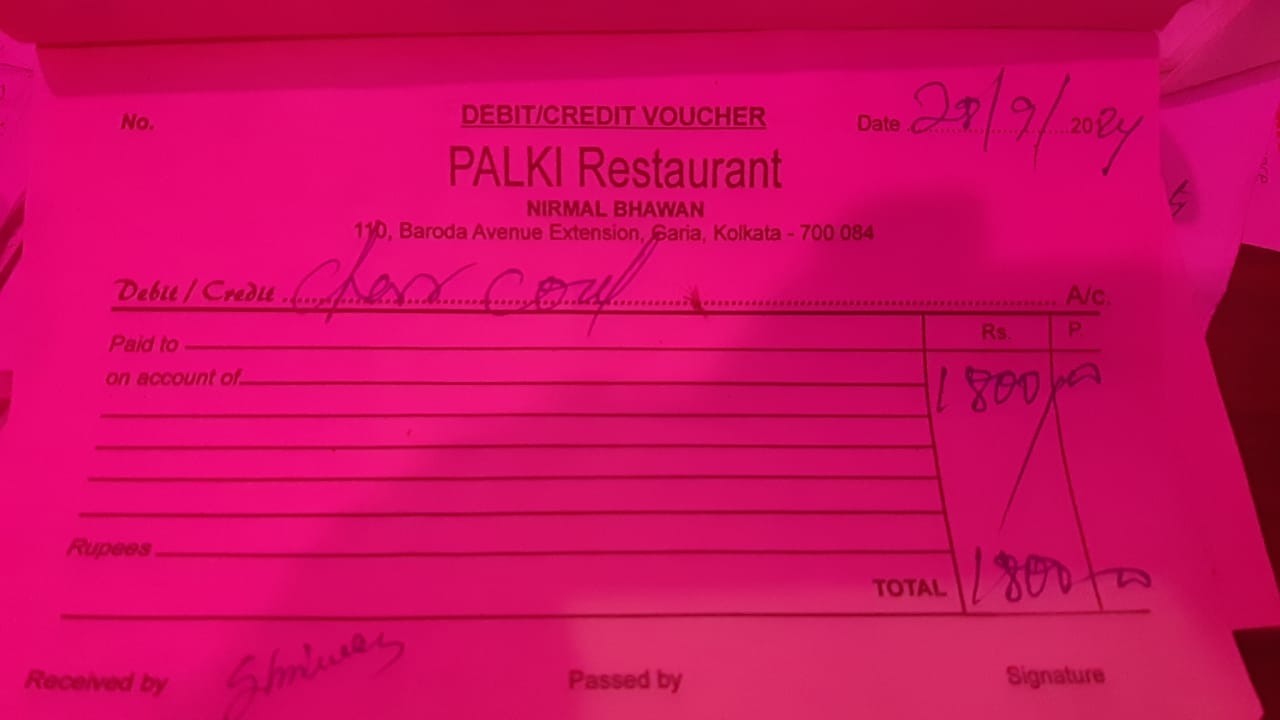 No. DEBIT/CREDIT VOUCHER Date 28/9/2024
PALKI Restaurant
NIRMAL BHAWAN
110, Baroda Avenue Extension, Garia, Kolkata - 700 084
Debit / Credit A/c.
Rs. P.
Paid to
on account of 1800/00
Rupees
TOTAL 1800/00
Received by Passed by Signature